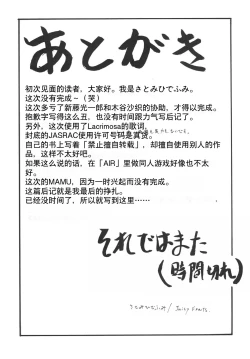 あとがき
初次见面的读者，大家好。我是さとみひでふみ。
这次没有完成－（哭）
这次多亏了新藤光一郎和木谷沙织的协助，才得以完成。
抱歉字写得这么丑，也没有时间跟力气写后记了。
另外，这次使用了Lacrimosa的歌词，
封底的JASRAC使用许可号码是真货。
自己的书上写着「禁止擅自转载」，却擅自使用别人的作
品，这样不太好吧。
如果这么说的话，在「AIR」里做同人游戏好像也不太
好。
这次的MAMU，因为一时兴起而没有完成。
这篇后记就是我最后的挣扎。
已经没时间了，所以就写到这里⋯⋯
それではまた
（時間切れ）
さとみひでふみ / Juicy Fruits.